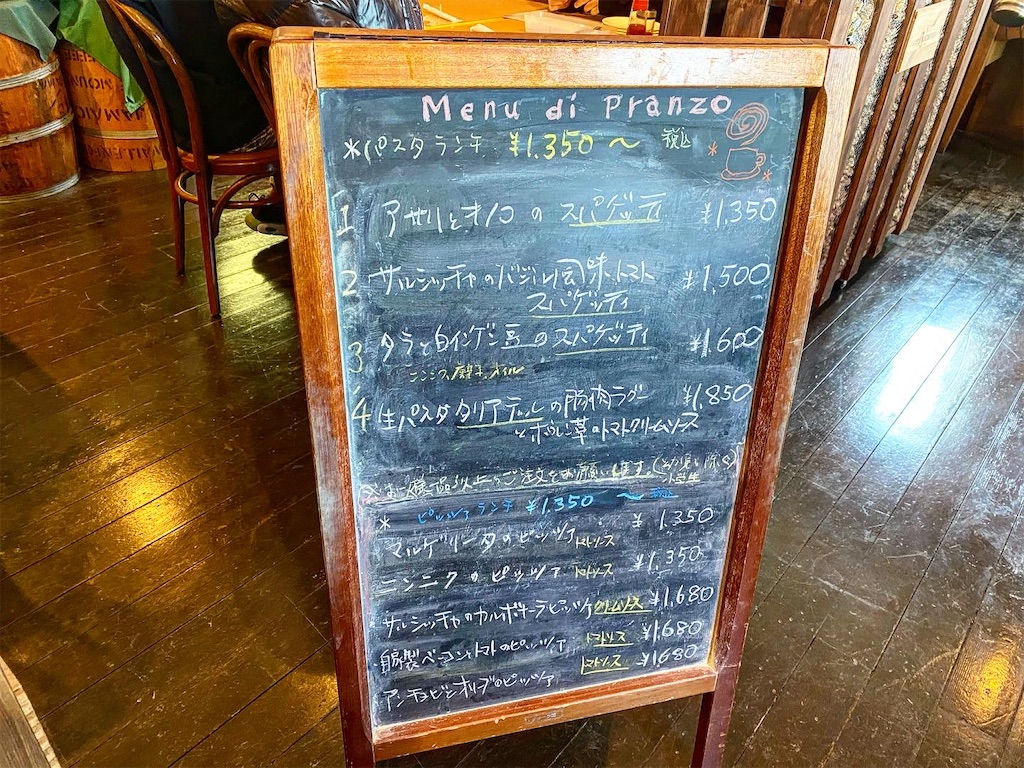 Menu di Pranzo
*パスタランチ ¥1.350～ 税込
1 アサリとオクロの スパゲッティ ¥1,350
2 サルシッチャのバジル風味トマト ¥1,500
スパゲッティ
3 タラと白インゲン豆のスパゲッティ ¥1.600
ニンニク オイル
4 生パスタタリアテッレの豚肉ラグー ¥1,850
とホウレン草のトマトクリームソース
お一人様一品以上のご注文をお願いします。
小学生
* ピッツァランチ ¥1.350 ～ 税込
マルゲリータのピッツァ トマトソース ¥1.350
ニンニクのピッツァ トマトソース ¥1,350
サルシッチャのカルボナーラピッツァ クリームソース ¥1,680
自家製ベーコントマトのピッツァ トマトソース ¥1,680
アンチョビとオリーブのピッツァ トマトソース ¥1680